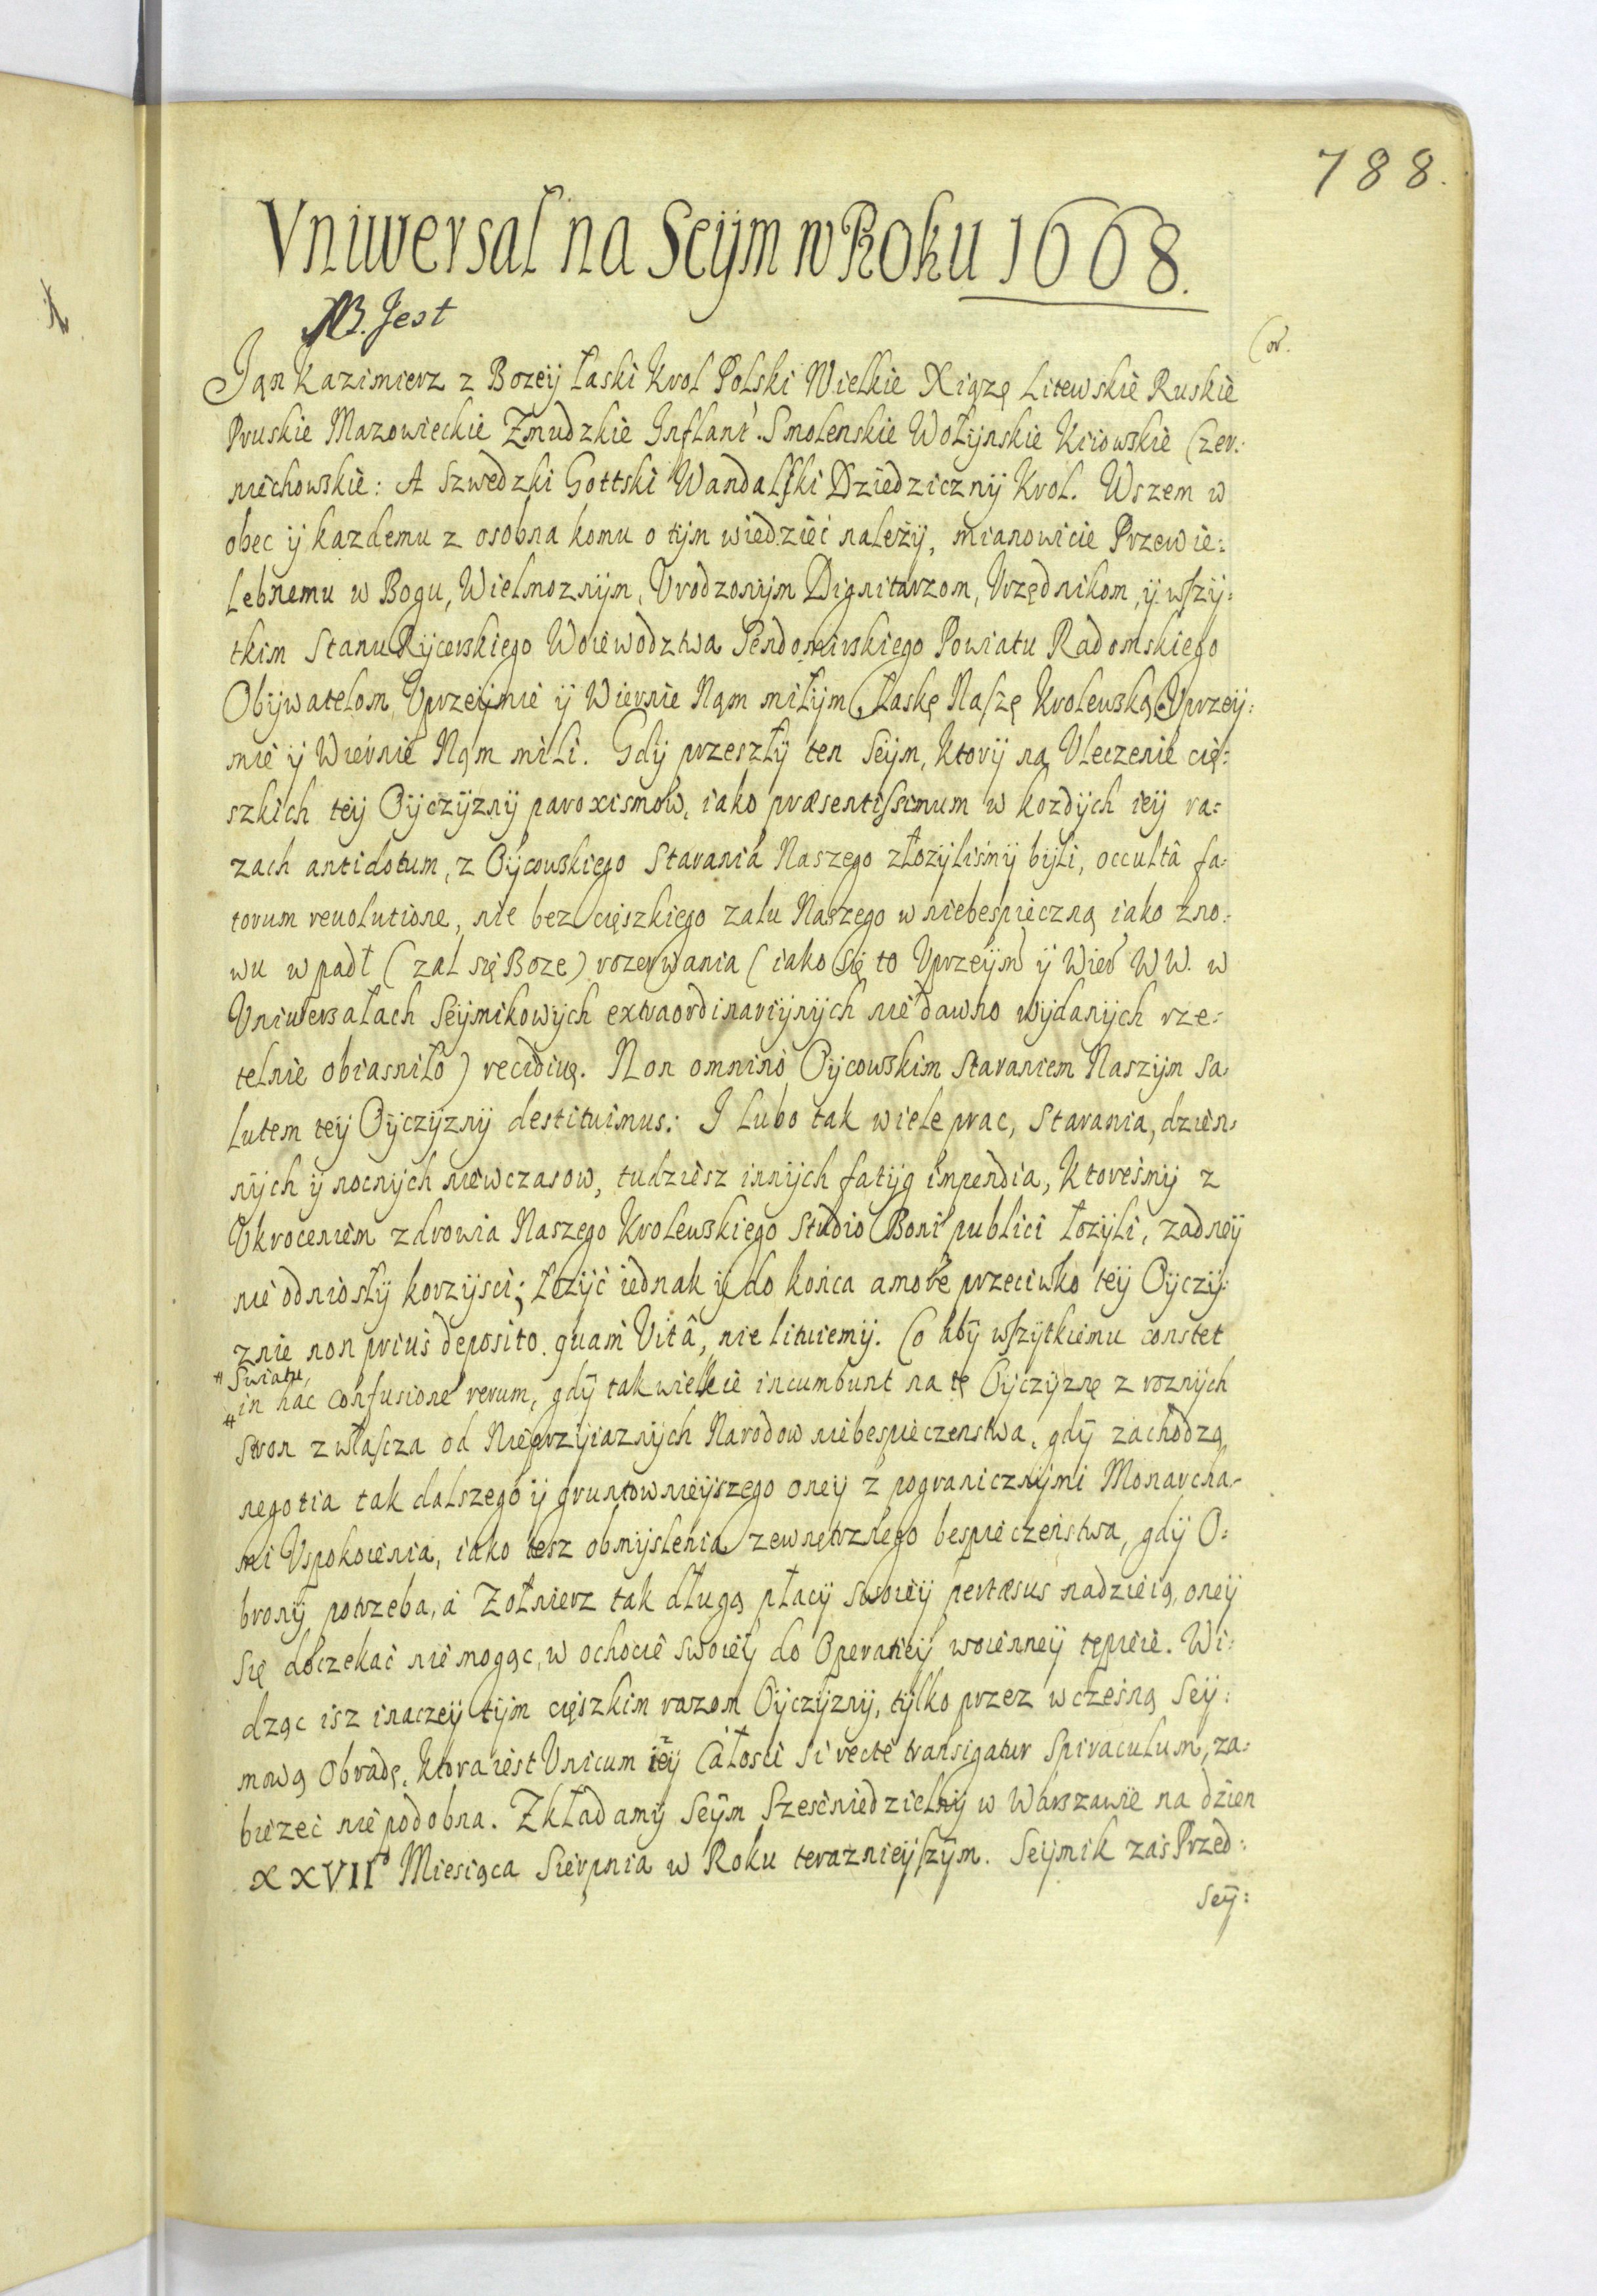 788.
Vniwersał na Seijm w Roku 1668.
NB. Jest
Cor.
Jan Kazimierz z Bozeij Łaski Krol Polski Wielkie Xiązę Litewskie Ruskie
Pruskie Mazowieckie Zmudzkie Inflant. Smolenskie Wołijnskie Kiiowskie Czer:
niechowskie: A Szwedzki Gottski Wandalski Dziedzicznij Krol. Wszem w
obec ij kazdemu z osobna komu o tijm wiedzieć należij, mianowicie Przewie:
lebnemu w Bogu, Wielmoznijm, Vrodzonijm Dignitarzom, Vrzędnikom, ij wszij:
tkim Stanu Rijcerskiego Woiewodztwa Sendomirskiego Powiatu Radomskiego
Obijwatelom, Vprzeijmie ij Wiernie Nąm miłijm, Łaskę Naszę Krolewską. Vprzeij:
mie ij Wiernie Nąm mili. Gdij przeszłij ten Seijm, ktorij na Vleczenie cię:
szkich teij Oijczijznij paroxismow, iako præsentissimum w kozdijch ieij ra:
zach antidotum, z Oijcowskiego Starania Naszego złozijliśmij bijli, occultâ fa:
torum reuolutione, nie bez cięszkiego zalu Naszego w niebespieczną iako zno:
wu wpadł (zal się Boze) rozerwania (iako się to Vprzeijm ij Wier WW. w
Vniwersałach Seijmikowijch extraordinarijnijch nie dawno wijdanijch rze:
telnie obiasniło) recidiuę. Non omnino Oijcowskim Staraniem Naszijm Sa:
lutem teij Oijczijznij destituimus: I lubo tak wiele prac, Starania, dzien:
nijch ij nocnijch niewczasow, tudziesz innijch fatijg impendia, ktoreśmij z
Vkroceniem zdrowia Naszego Krolewskiego Studio Boni publici łozijli, zadneij
nie odniosłij korzijsci; łozijć iednak ij do końca amore przeciwko teij Oijczij:
znie non prius deposito quam Vitâ, nie lituiemij. Co abij wszijtkiemu constet
# Swiatu,
# in hac confusione rerum, gdij tak wielkie incumbunt na tę Oijczijznę z roznijch
Stron zwłaszcza od Nieprzijiaznijch Narodow niebespieczenstwa, gdij zachodzą
negotia tak dalszego ij gruntownieijszego oneij z pogranicznijmi Monarcha:
mi Vspokoienia, iako tesz obmijslenia zewnętrznego bespieczeństwa, gdij O:
bronij potrzeba, a Zołnierz tak długą płacij swoieij pertæsus nadzieią, oneij
się doczekać nie mogąc, w ochocie swoieij do Operatieij woienneij tępieie. Wi:
dząc isz inaczeij tijm cięszkim razom Oijczijznij, tijlko przez wczesną Seij:
mową Obradę, ktora iest Vnicum ieij Całości si recte transigatur Spiraculum, za:
biezeć nie podobna. Zkładamij Seijm Szescniedzielnij w Warszawie na dzien
XXVIIº Miesiąca Sierpnia w Roku teraznieijszijm. Seijmik zaś Przed:
Seij: